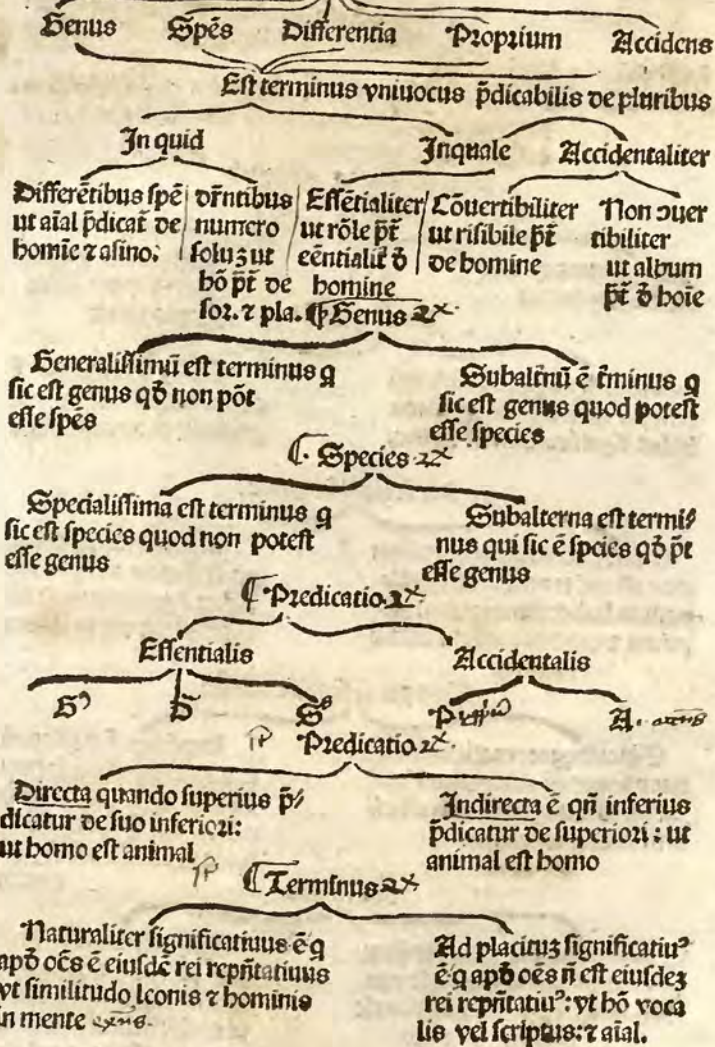 Genus Spēs Differentia Proprium Accidens
Est terminus vniuocus p̄dicabilis de pluribus
In quid Inquale Accidentaliter
Differētibus spē
ut aīal p̄dicat̄ de
homīe ⁊ asino:
dr̄ntibus
numero
soluꝫ ut
hō pt̄ de
sor. ⁊ pla.
Essētialiter
ut rōle pt̄
eēntialit̄ đ
homine
Cōuertibiliter
ut risibile pt̄
de homine
Non ɔuer
tibiliter
ut album
pt̄ đ hoīe
¶ Genus 2x
Generalissimū est terminus q
sic est genus qđ non pōt
esse spēs
Subaltn̄ū ē t̄minus q
sic est genus quod potest
esse species
¶ Species 2x
Specialissima est terminus q
sic est species quod non potest
esse genus
Subalterna est termi⸗
nus qui sic ē spēcies qđ pt̄
esse genus
¶ Predicatio. 2x
Essentialis Accidentalis
G⁹ D̄ Sˢ P A.
Predicatio. 2x.
Directa quando superius p̄⸗
dicatur de suo inferiori:
ut homo est animal
Indirecta ē qn̄ inferius
p̄dicatur de superiori : ut
animal est homo
¶ Terminus 2x
Naturaliter significatiuus ē q
apđ oēs ē eiusdē rei repn̄tatiuus
vt similitudo leonis ⁊ hominis
in mente
Ad placituꝫ significatiu⁹
ē q apđ oēs n̄ est eiusdeꝫ
rei repn̄tatiu⁹: vt hō voca
lis vel scriptus: ⁊ aīal.